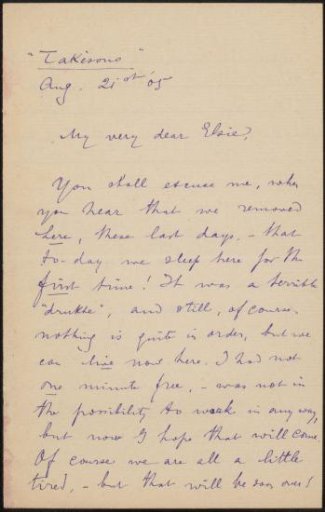 "Takisono"
Aug. 21st 05
My very dear Elsie,
You shall excuse me, when
you hear that we removed
here, these last days, - that
to-day we sleep here for the
first time! It was a terrible
"drukte", and still, of course,
nothing is quite in order, but we
can live now here. I had not
one minute free, - was not in
the possibility to work in any way,
but now I hope that will come.
Of course we are all a little
tired, - but that will be soon over!